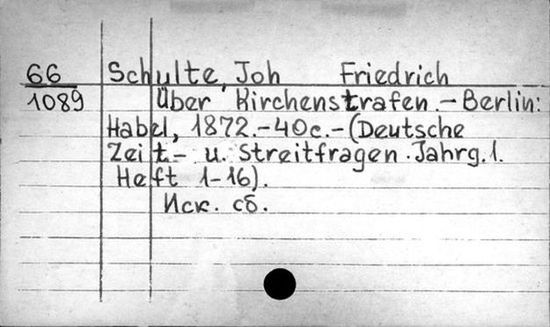 66 Schulte, Joh Friedrich
1089 Über Kirchenstrafen.-Berlin:
Habel, 1872.-40c.-(Deutsche
Zeit- u. Streitfragen. Jahrg. 1.
Heft 1-16).
Иск. сб.